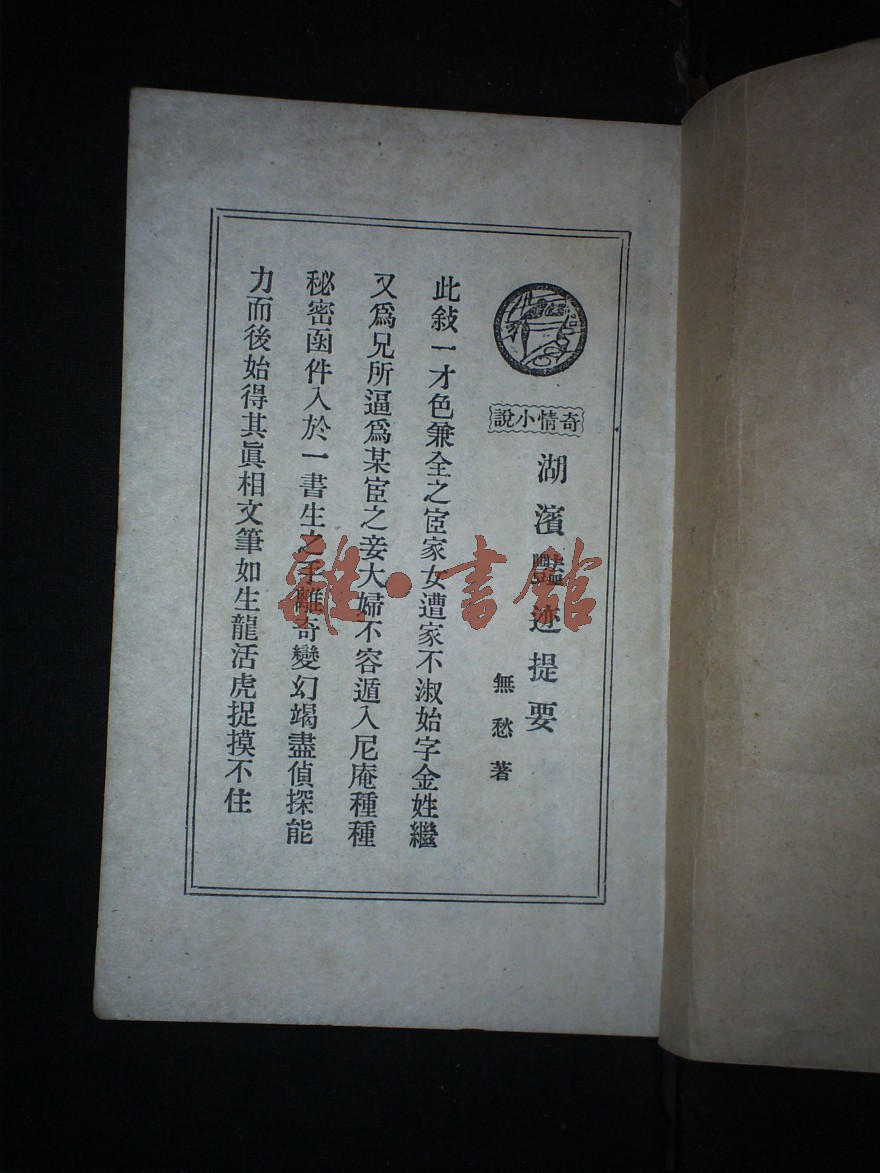 奇情小說
湖濱豔迹提要
無愁著
此敍一才色兼全之宦家女遭家不淑始字金姓繼
又爲兄所逼爲某宦之妾大婦不容遁入尼庵種種
秘密函件入於一書生之手離奇變幻竭盡偵探能
力而後始得其眞相文筆如生龍活虎捉摸不住
雜·書館